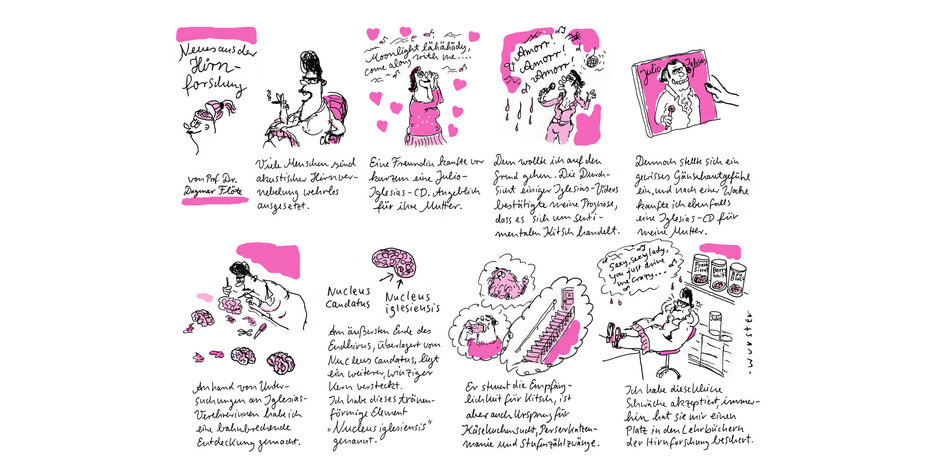 Neues aus der
Hirn-
forschung
von Prof. Dr.
Dagmar Flötz
Viele Menschen sind
akustischer Hirnver-
nebelung wehrlos
ausgesetzt.
Moonlight lähähädy,
come along with me....
Eine Freundin kaufte vor
kurzem eine Julio-
Iglesias-CD. Angeblich
für ihre Mutter.
Amorr!
Amorr!
Amorr!
Dem wollte ich auf den
Grund gehen. Die Durch-
sicht einiger Iglesias-Videos
bestätigte meine Prognose,
dass es sich um senti-
mentalen Kitsch handelt.
Julio Iglesias
Dennoch stellte sich ein
gewisses Gänsehautgefühl
ein, und nach einer Woche
kaufte ich ebenfalls
eine Iglesias-CD für
meine Mutter.
Anhand von Unter-
suchungen an Iglesias-
Verehrerinnen habe ich
eine bahnbrechende
Entdeckung gemacht.
Nucleus
caudatus
Nucleus
iglesiensis
Am äußersten Ende des
Endhirns, überlagert vom
Nucleus caudatus, liegt
ein weiterer, winziger
Kern versteckt.
Ich habe dieses tränen-
förmige Element
"Nucleus iglesiensis"
genannt.
Er steuert die Empfäng-
lichkeit für Kitsch, ist
aber auch Ursprung für
Käsekuchensucht, Perserkatzen-
manie und Stufenzählzwänge.
Sexy, sexy lady,
you just drive
me crazy...
Ich habe diese kleine
Schwäche akzeptiert, immer-
hin hat sie mir einen
Platz in den Lehrbüchern
der Hirnforschung beschert.
-wurster